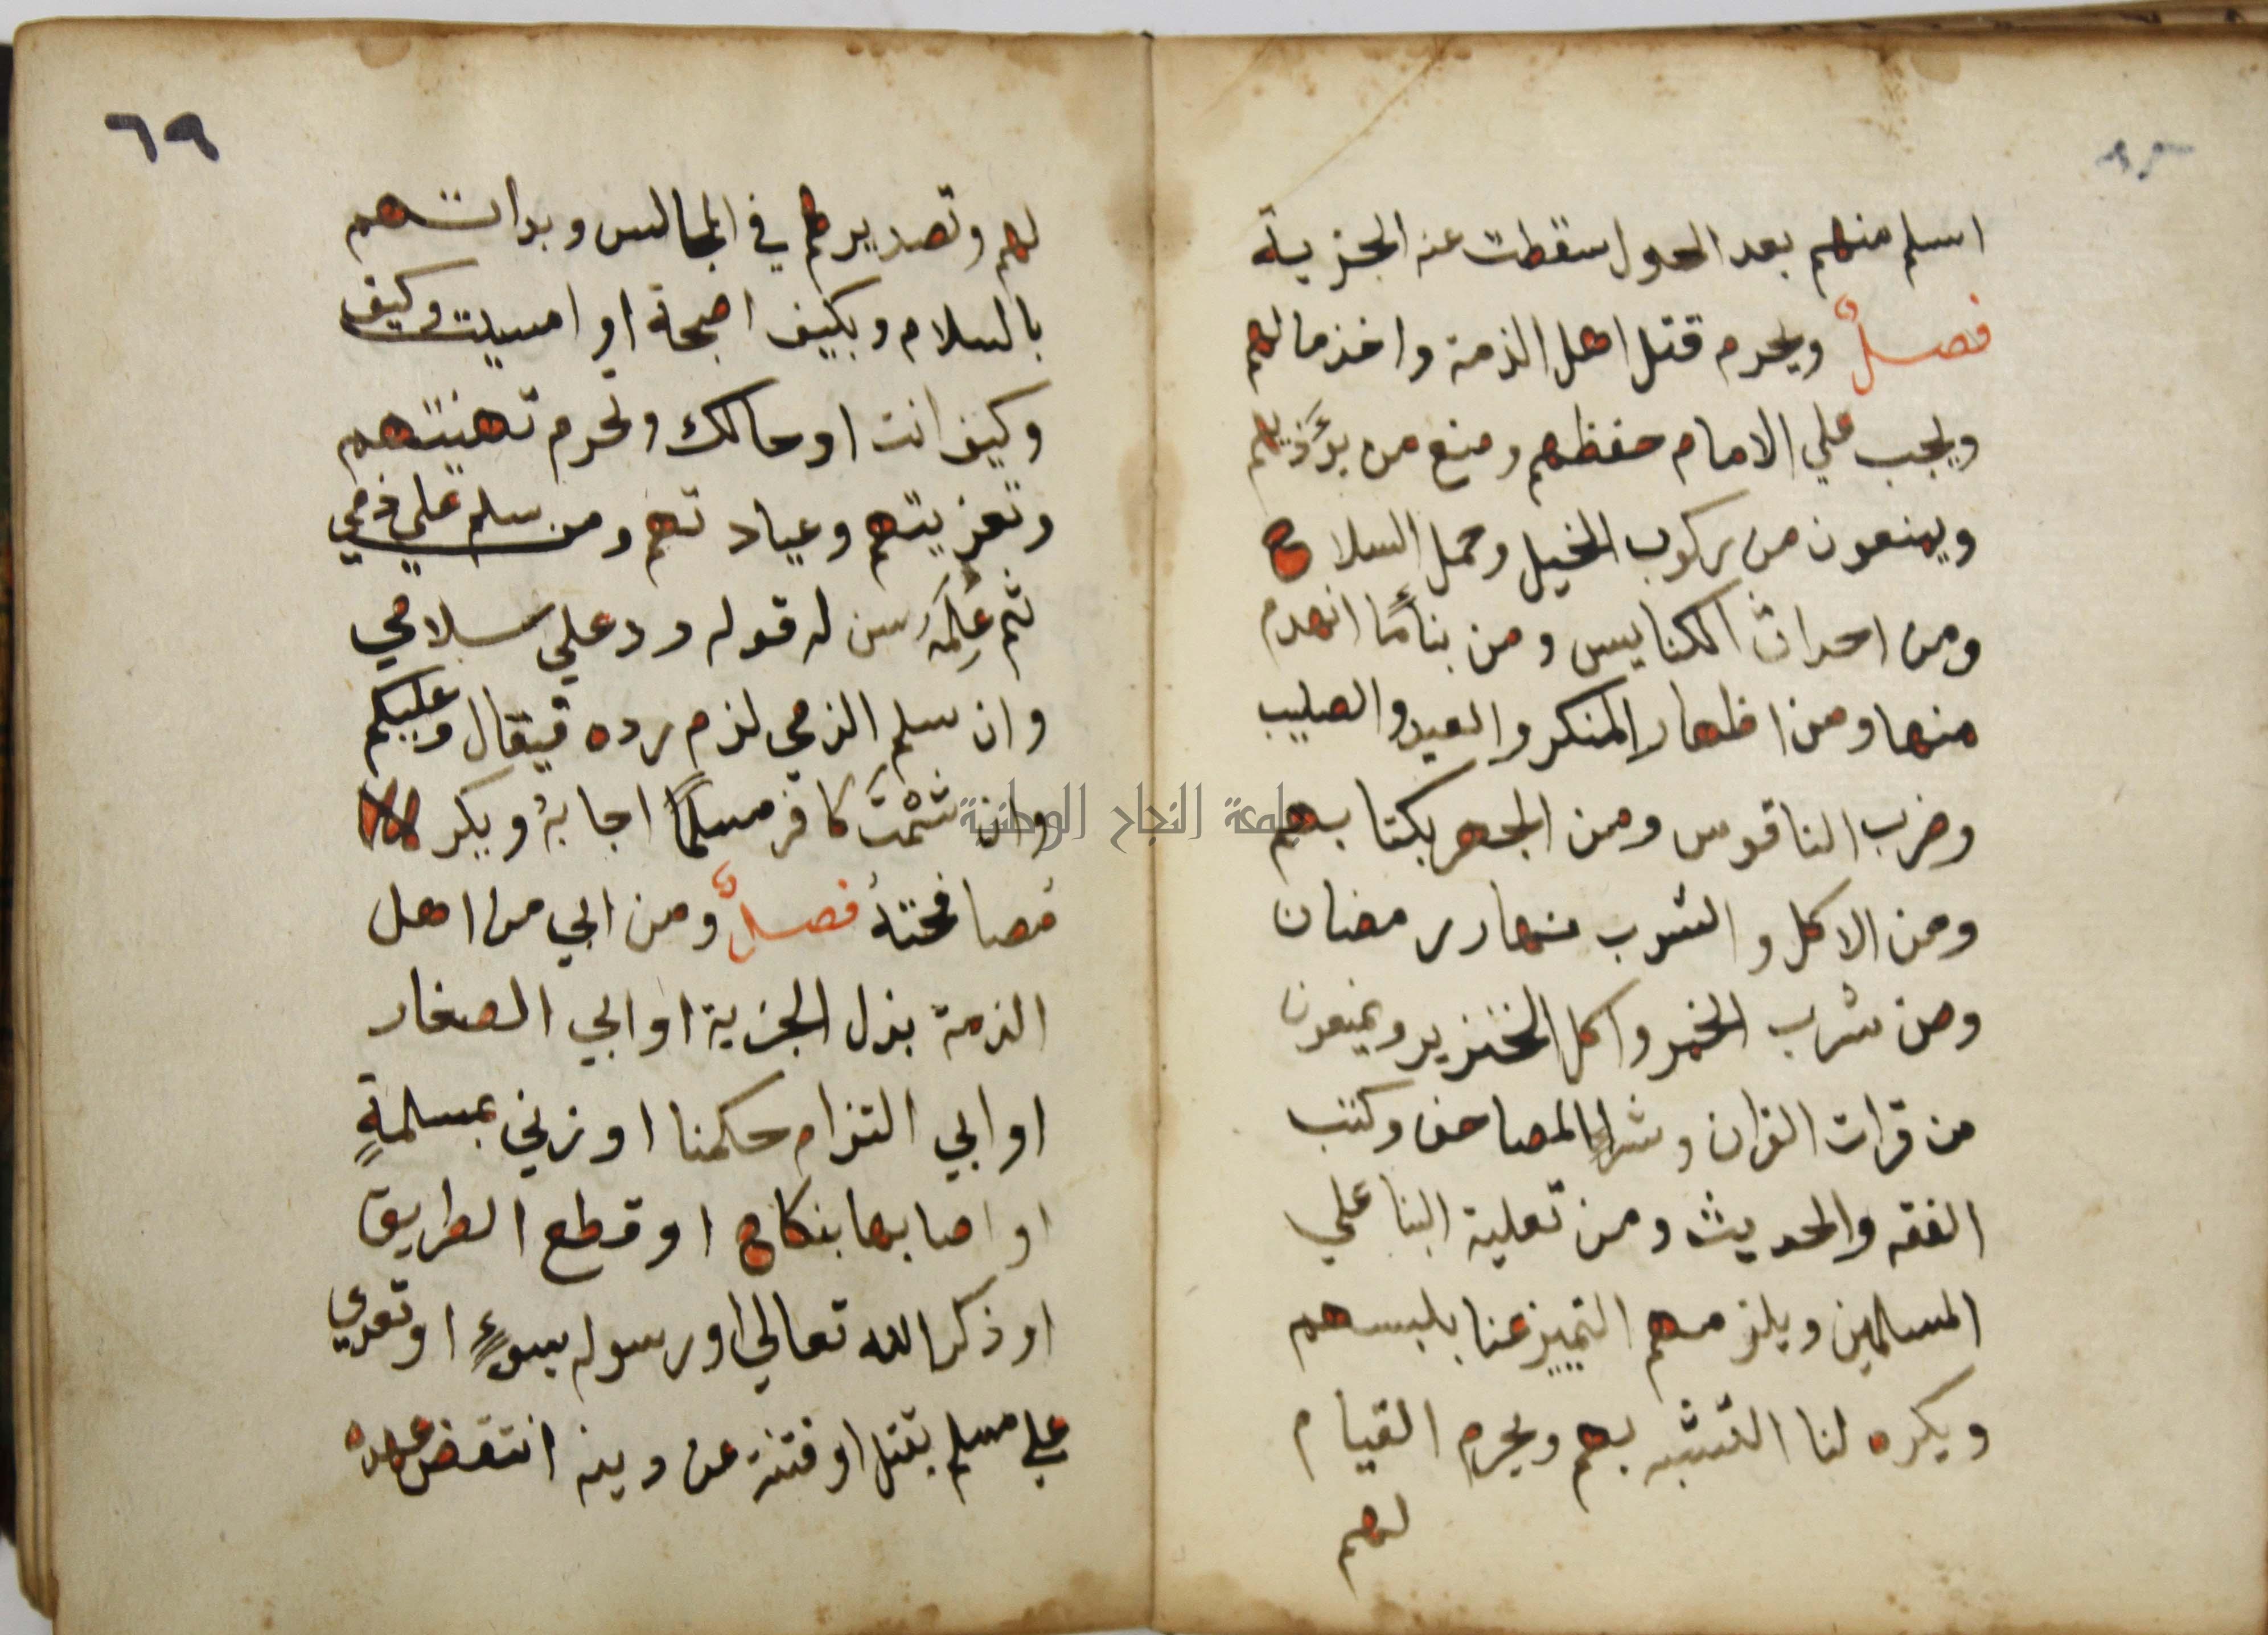 اسلم منهم بعد الحول سقطت عنه الجزية
فصلٌ ويحرم قتل اهل الذمة واخذ مالهم
ويجب علي الامام حفظهم ومنع من يؤذيهم
ويمنعون من ركوب الخيل وحمل السلاح
ومن احداث الكنايس ومن بنا ما انهدم
منها ومن اظهار المنكر والعيد والصليب
وضرب الناقوس ومن الجهر بكتابهم
ومن الاكل والشرب نهار رمضان
ومن شرب الخمر واكل الخنزير ويمنعون
من قرات القران وشراء المصاحف وكتب
الفقه والحديث ومن تعلية البنا علي
المسلمين ويلزمهم التمييز عنا بلبسهم
ويكره لنا التشبه بهم ويحرم القيام
لهم
٦٩
لهم وتصديرهم في المجالس وبداتهم
بالسلام وبكيف اصبحة او امسيت وكيف
وكيف انت او حالك وتحرم تهنيتهم
وتعزيتهم وعيادتهم ومن سلم علي ذمي
ثم عَلِمَهُ سن له قوله رد علي سلامي
وان سلم الذمي لزم رده فيقال وعليكم
وان شَمَّتَ كافر مسلمًا اجابهُ ويكر
مصافحتهُ فصلٌ ومن ابي من اهل
الذمة بذل الجزية او ابي الصغار
او ابي التزام حكمنا او زني بمسلمةٍ
او اصابها بنكاح او قطع الطريق
او ذكر الله تعالي او رسوله بسوءٍ او تعدي
علي مسلم بقتل او فتنة عن دينه انتقض عهده
جامعة النجاح الوطنية